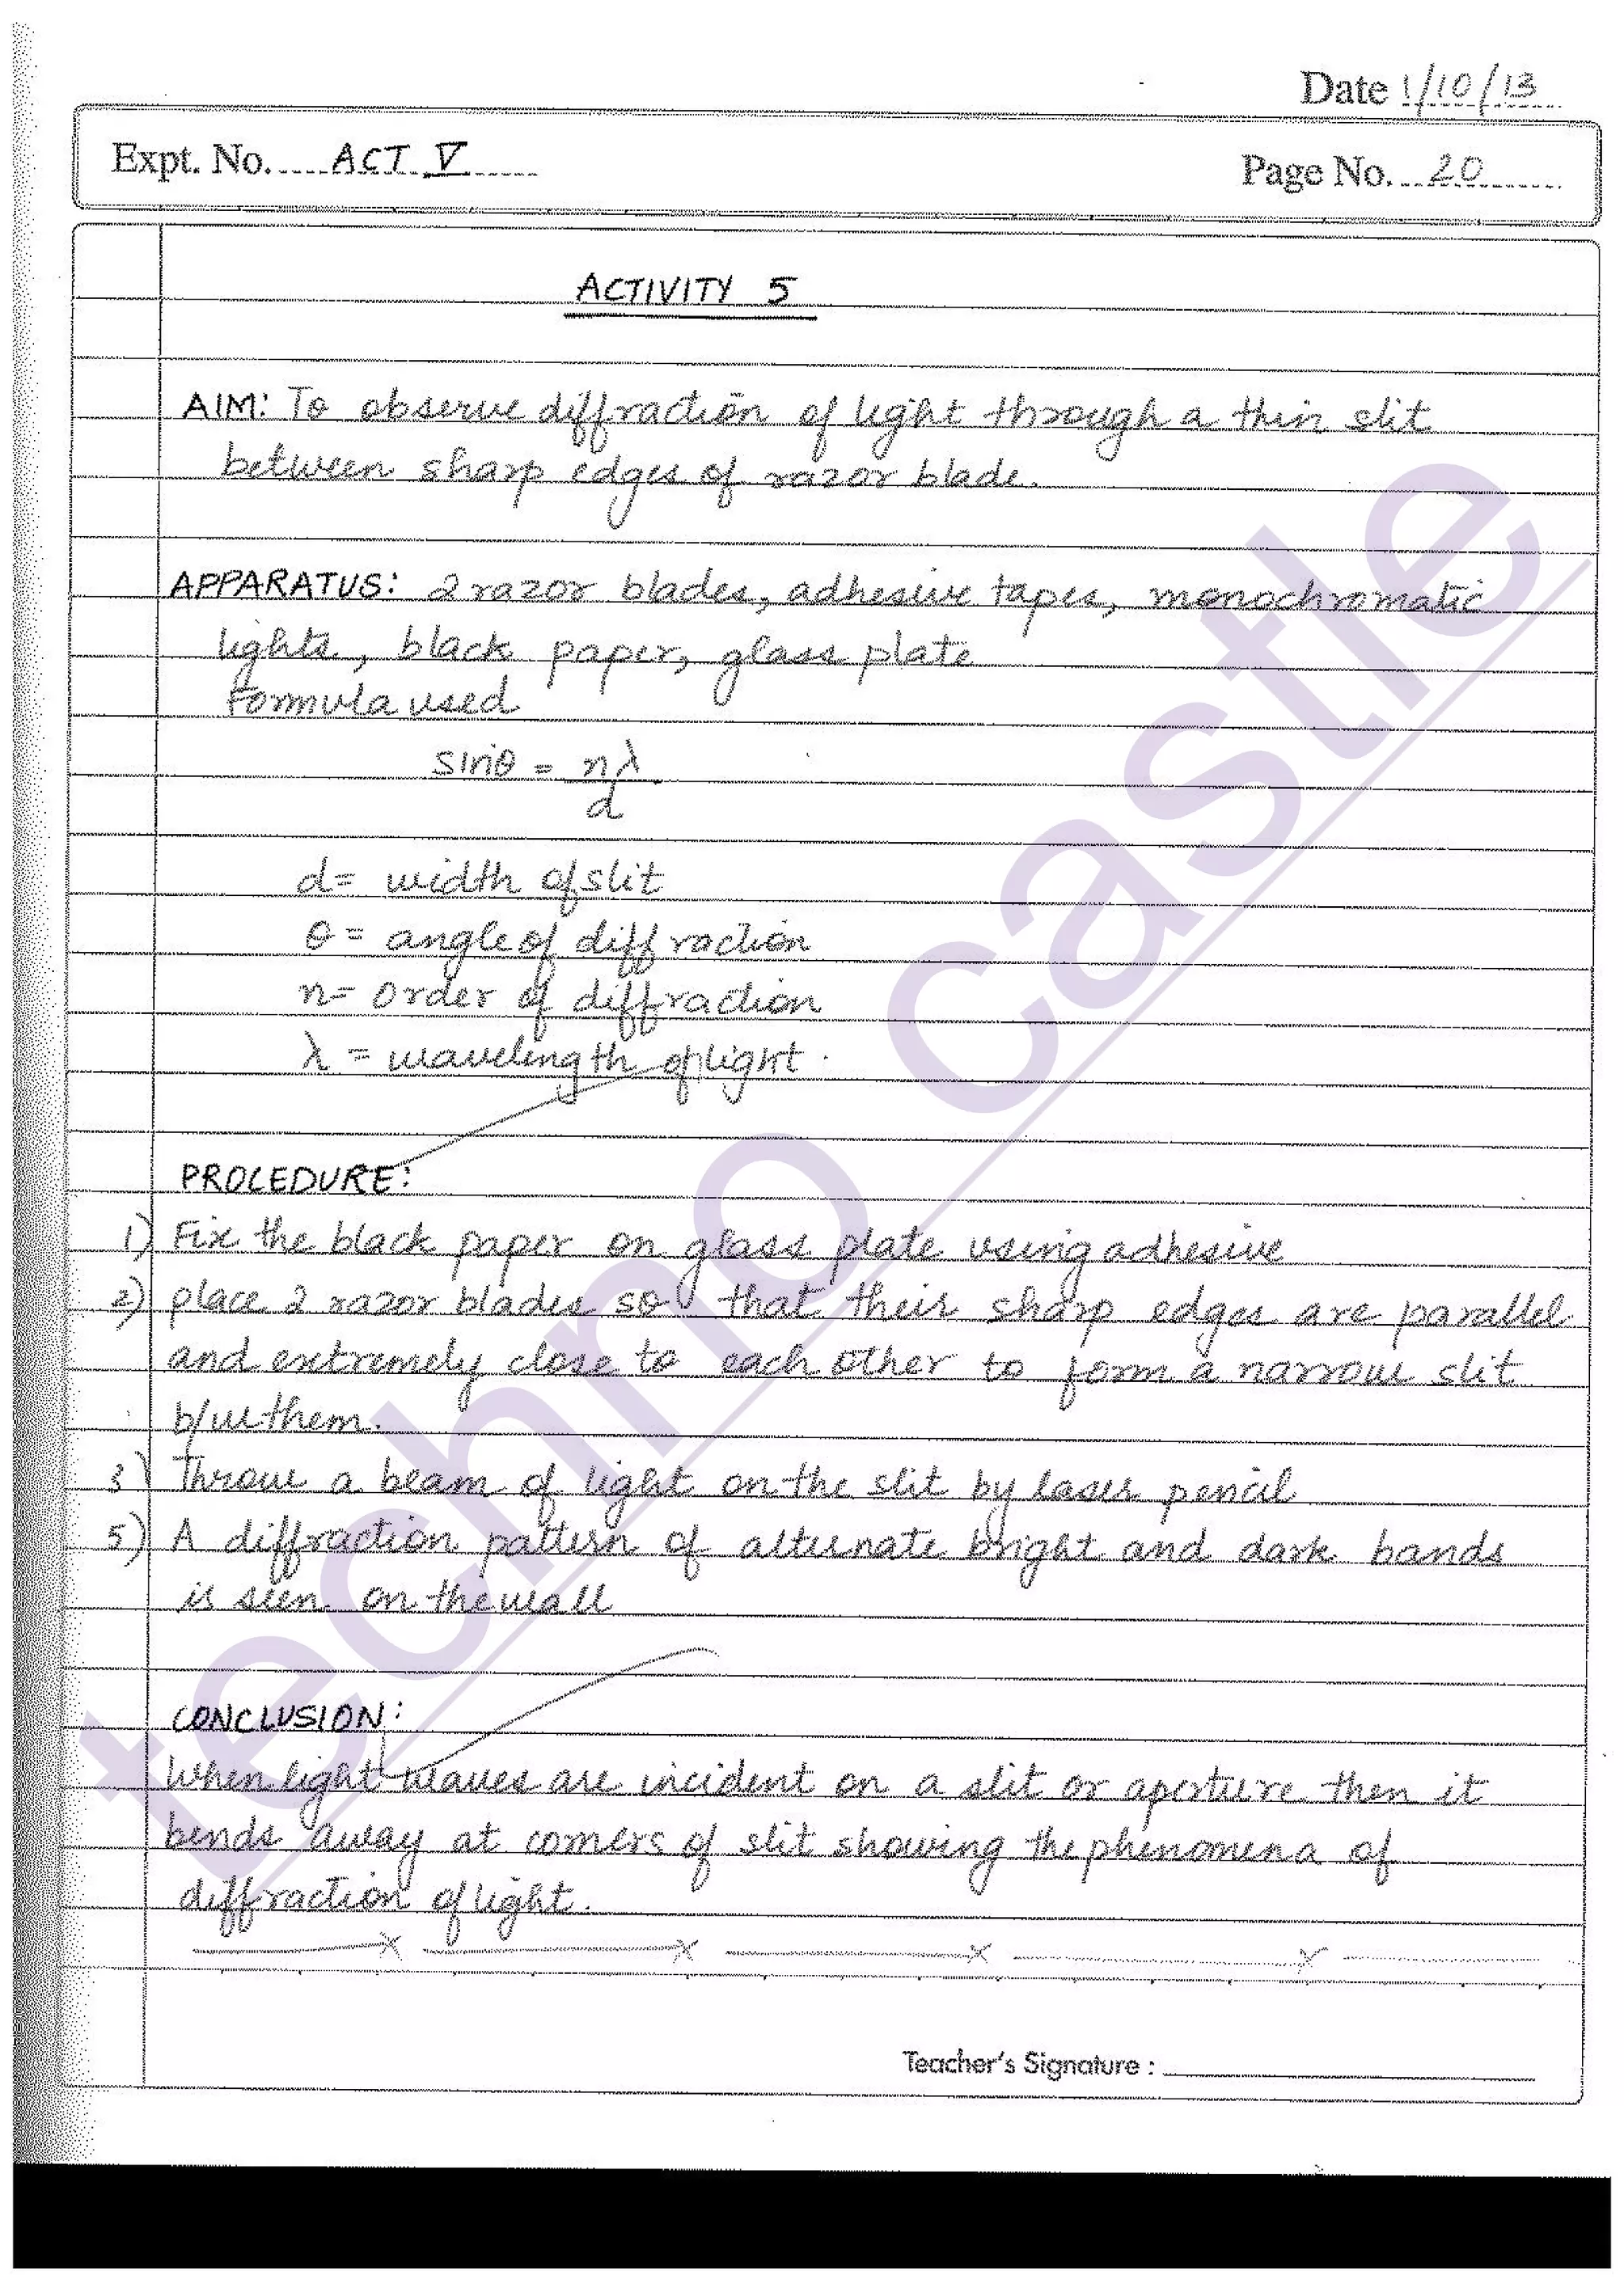 Date 1/10/13
Expt. No. ACT V
Page No. 20
ACTIVITY 5
AIM: To observe diffraction of light through a thin slit
between sharp edges of razor blade.
APPARATUS: 2 razor blades, adhesive tapes, monochromatic
lights, black paper, glass plate
Formula used
sinθ = nλ/d
d= width of slit
θ = angle of diffraction
n= order of diffraction
λ = wavelength of light.
PROCEDURE:
1) Fix the black paper on glass plate using adhesive
2) place 2 razor blades so that their sharp edges are parallel
and extremely close to each other to form a narrow slit
b/w them.
3) Throw a beam of light on the slit by laser pencil
5) A diffraction pattern of alternate bright and dark bands
is seen on the wall
CONCLUSION:
When light waves are incident on a slit or aperture then it
bends away at corners of slit showing the phenomena of
diffraction of light.
Teacher's Signature :
techno castle